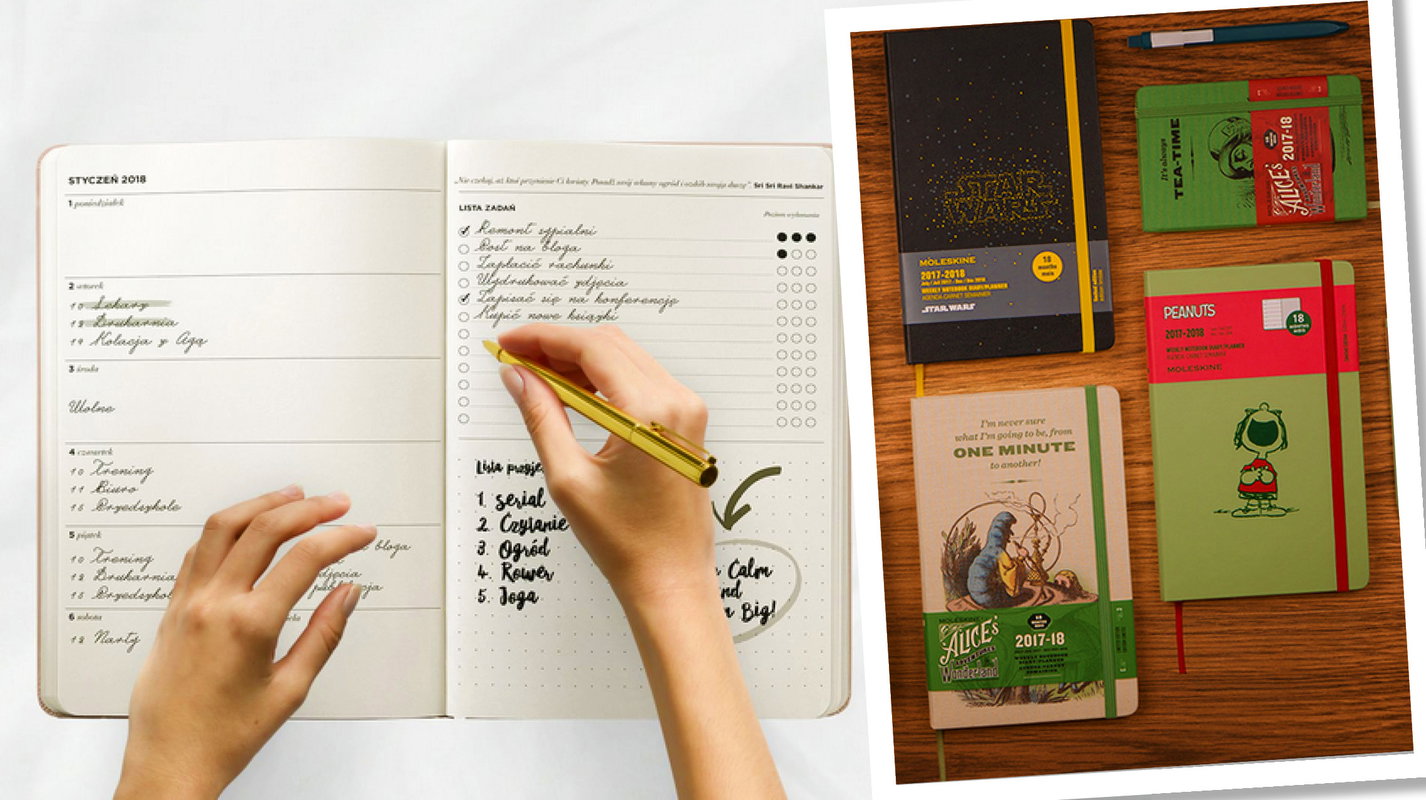 STYCZEŃ 2018
1 poniedziałek
2 wtorek
10 Lekarz
12 Drukarnia
19 Kolacja z Agą
3 środa
Wolne
4 czwartek
10 Trening
11 Biuro
15 Przedszkole
5 piątek
10 Trening
12 Drukarnia
15 Przedszkol
bloga
6 sobota
12 Narty
„Nie czekaj, aż ktoś przyniesie Ci kwiaty. Posadź swój własny ogród i ozdób swoją duszę”. Sri Sri Ravi Shankar
LISTA ZADAŃ
Poziom wykonania
Remont sypialni
Post na bloga
Zapłacić rachunki
Wydrukować zdjęcia
Zapisać się na konferencję
Kupić nowe książki
Lista przyje
1. serial
2. Czytanie
3. Ogród
4. Rower
5. Joga
Calm
nd
Big!
STAR
WARS
MOLESKINE
2017-2018
WEEKLY NOTEBOOK DIARY/PLANNER
AGENDA CARNET SEMAINIER
STAR WARS
18
months
mois
It's always
TEA-TIME
ALICE's
Wonderland
2017-18
PEANUTS
2017-2018
WEEKLY NOTEBOOK DIARY/PLANNER
MOLESKINE
18
MONTHS
MOIS
I'm never sure
what I'm going to be, from
ONE MINUTE
to another!
MOLESKINE
ALICE's
ADVENTURES
Wonderland
2017-18
WEEKLY NOTEBOOK
DIARY/PLANNER
AGENDA CARNET
SEMAINIER